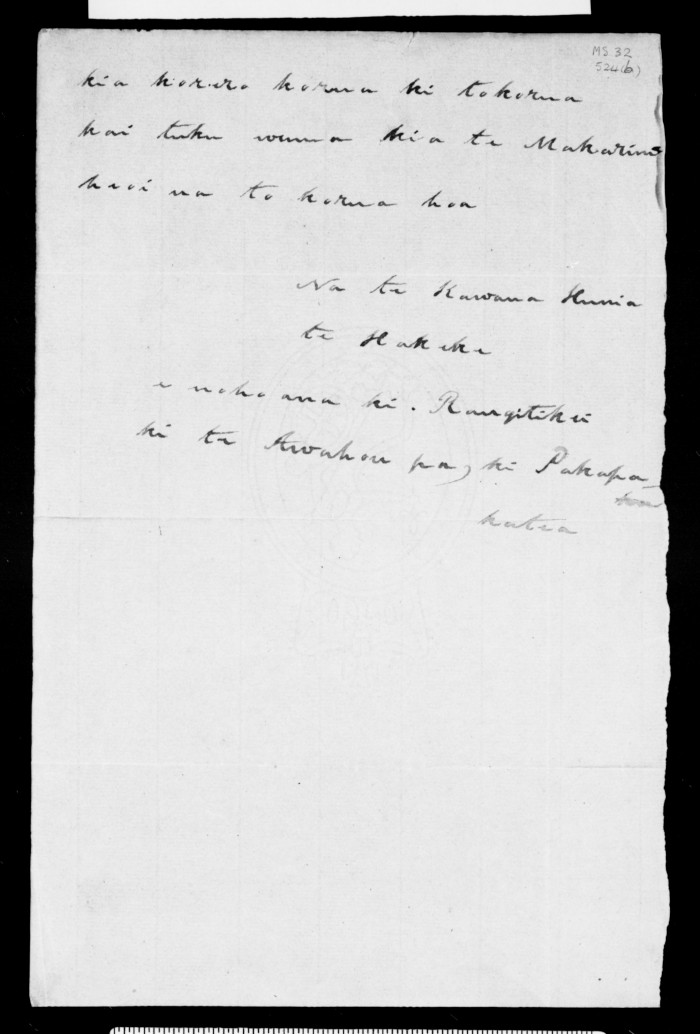 MS 32
524(b)
kia korero korua ki tokorua
kai tuku wuua kia te Makarini
heoi na to korua hoa
Na te Kawana Hunia
te Hakeke
e noho ana ki. Rangitikei
ki te Awahou pa, ki Pakapa-
katea